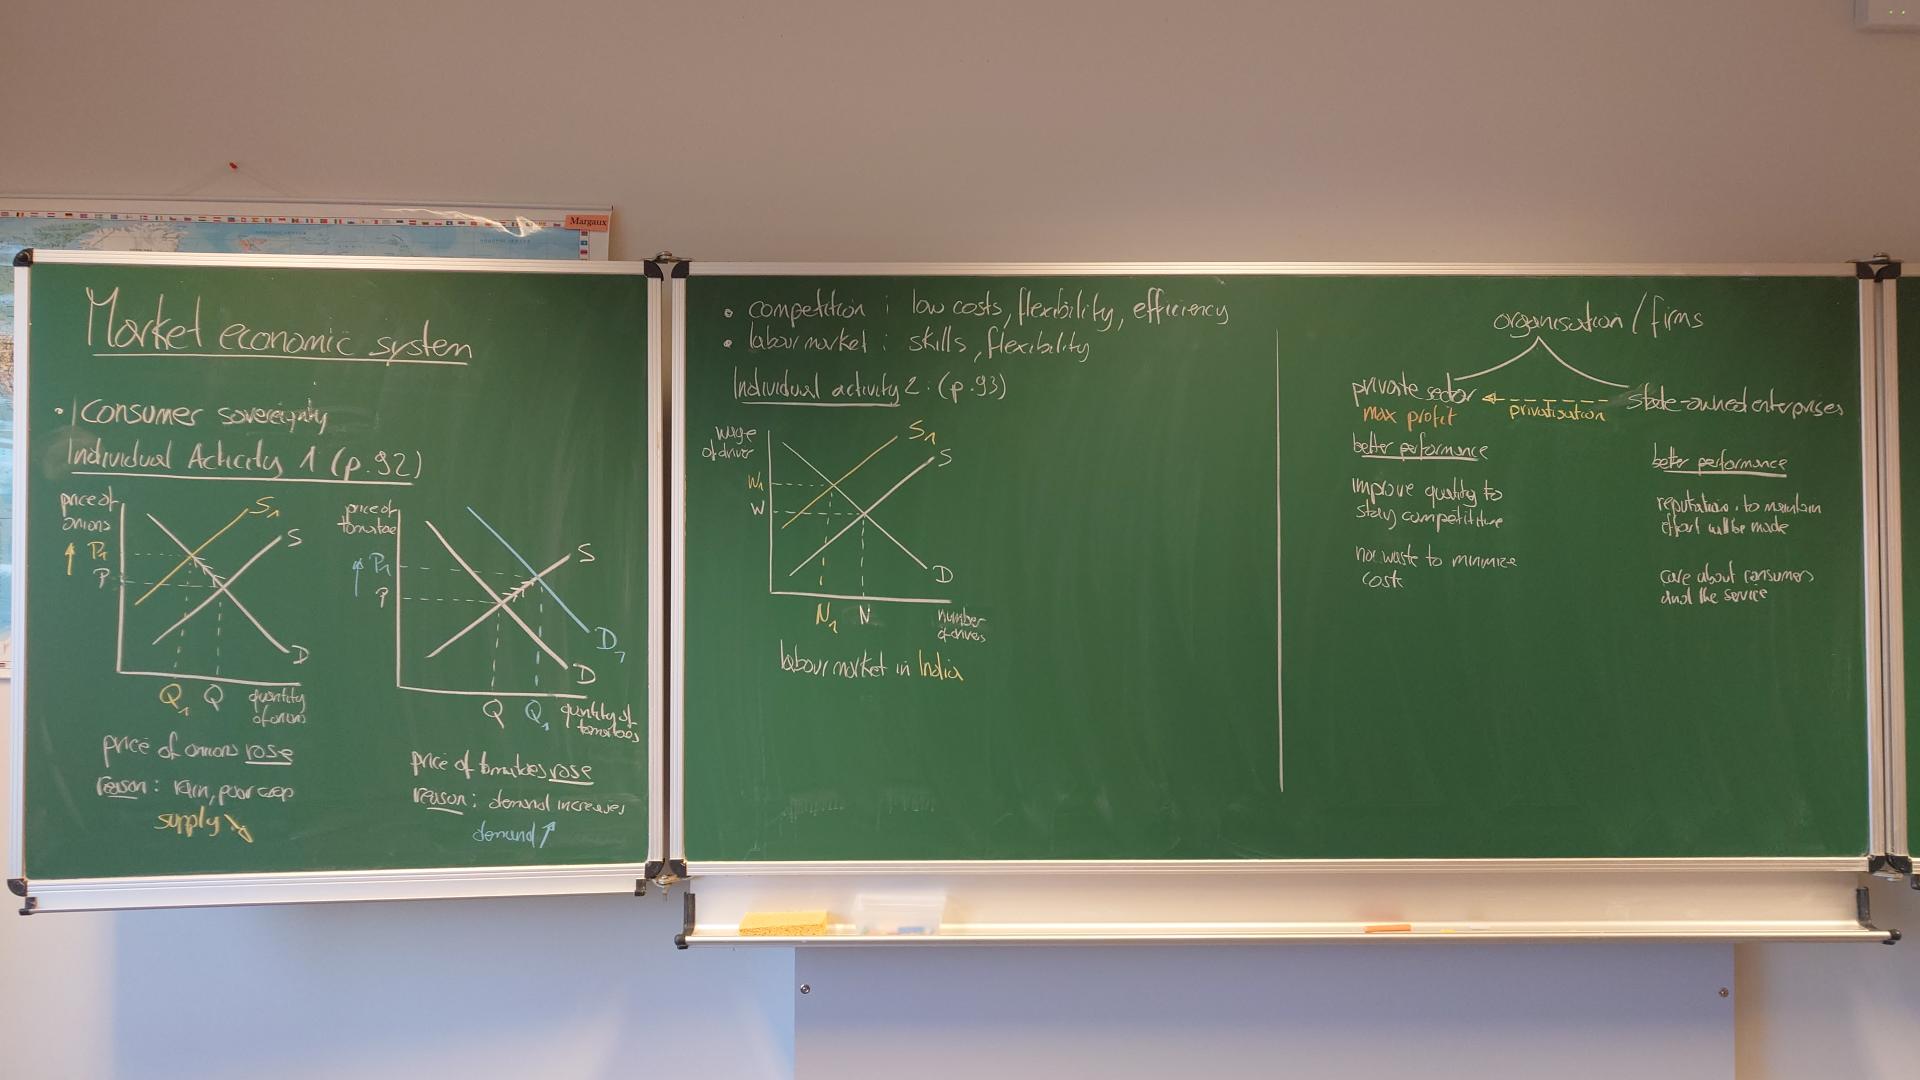 Margaux
Market economic system
• Consumer sovereignty
Individual Acticity 1 (p.92)
price of
onions
S₁
S
P₁
P
D
Q₁ Q quantity
of onions
price of onions rose
reason : rain, poor crop
supply ↘
price of
tomatoe
S
P₁
P
D₁
D
Q Q₁ quantity of
tomatoes
price of tomatoes rose
reason : demand increases
demand ↗
• competition : low costs, flexibility, efficiency
• labour market : skills, flexibility
Individual activity 2 : (p.93)
wage
of driver
S₁
S
W₁
W
D
N₁ N number
of drivers
labour market in India
organisation / firms
private sector
max profit
privatisation
state-owned enterprises
better performance
improve quality to
stay competititve
no waste to minimize
costs
better performance
reputation. to maintain
effort will be made
care about consumers
and the service